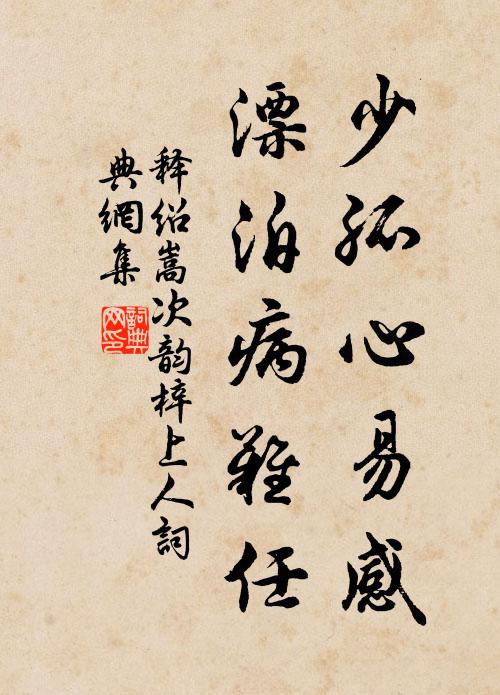 少孤心易感
漂泊病難任
释绍嵩次韵梓上人詞
典網集
詞典网印